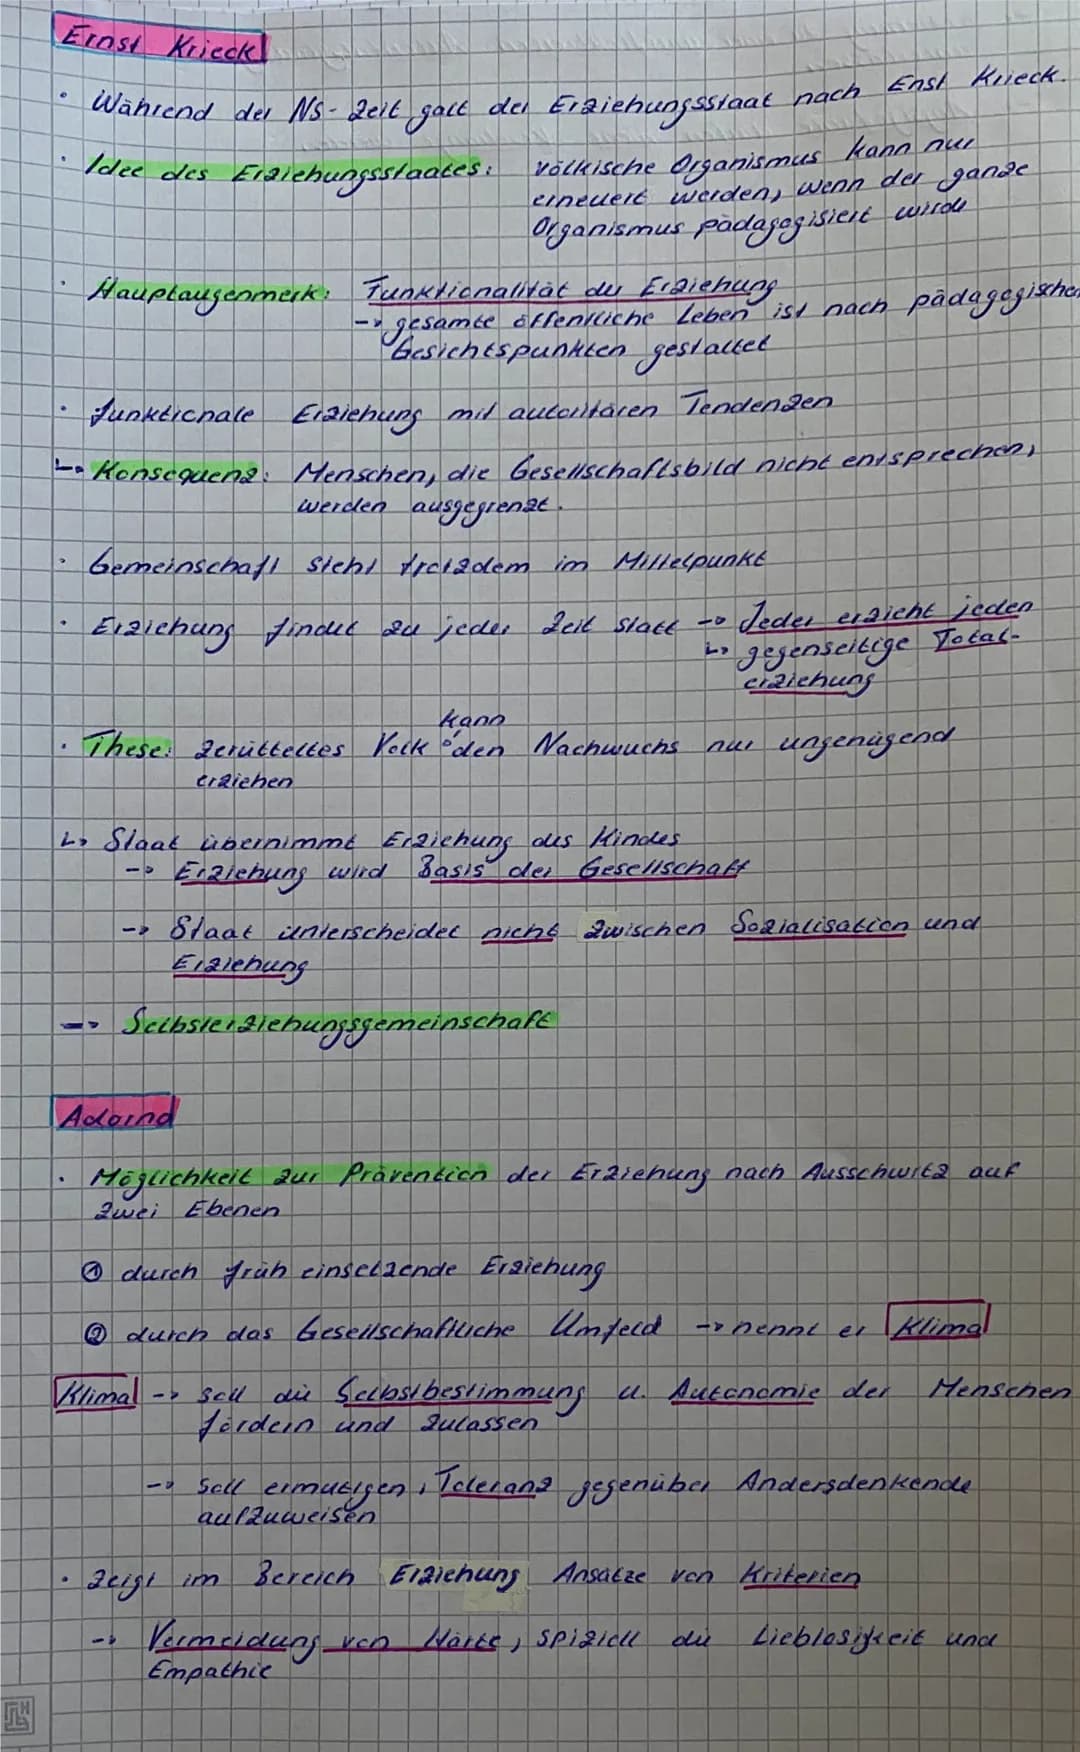 Ernst Krieck
• Während der NS-Zeit galt der Erziehungsstaat nach Enst Krieck.
• Idee des Erziehungsstaates: völkische Organismus kann nur
erneuert werden, wenn der ganze
Organismus pädagogisiert wird
• Hauptaugenmerk: Funktionalität der Erziehung
-> gesamte öffentliche Leben ist nach pädagogischen
Gesichtspunkten gestaltet
• funktionale Erziehung mit autoritären Tendenzen
↳ Konsequenz: Menschen, die Gesellschaftsbild nicht entsprechen,
werden ausgegrenzt.
• Gemeinschaft steht trotzdem im Mittelpunkt
• Erziehung findet zu jeder Zeit statt -> Jeder erzieht jeden
↳ gegenseitige Total-
erziehung
kann
• These: zerütteltes Volk den Nachwuchs nur ungenügend
erziehen
↳ Staat übernimmt Erziehung des Kindes
-> Erziehung wird Basis der Gesellschaft
-> Staat unterscheidet nicht zwischen Sozialisation und
Erziehung
-> Selbsterziehungsgemeinschaft
Adorno
• Möglichkeit zur Prävention der Erziehung nach Ausschwitz auf
zwei Ebenen
① durch früh einsetzende Erziehung
② durch das Gesellschaftliche Umfeld -> nennt er Klima
Klima -> soll die Selbstbestimmung u. Autonomie der Menschen
fördern und zulassen
-> soll ermutigen, Toleranz gegenüber Andersdenkende
aufzuweisen
• zeigt im Bereich Erziehung Ansätze von Kriterien
-> Vermeidung von Härte, spiziell die Lieblosigkeit und
Empathie